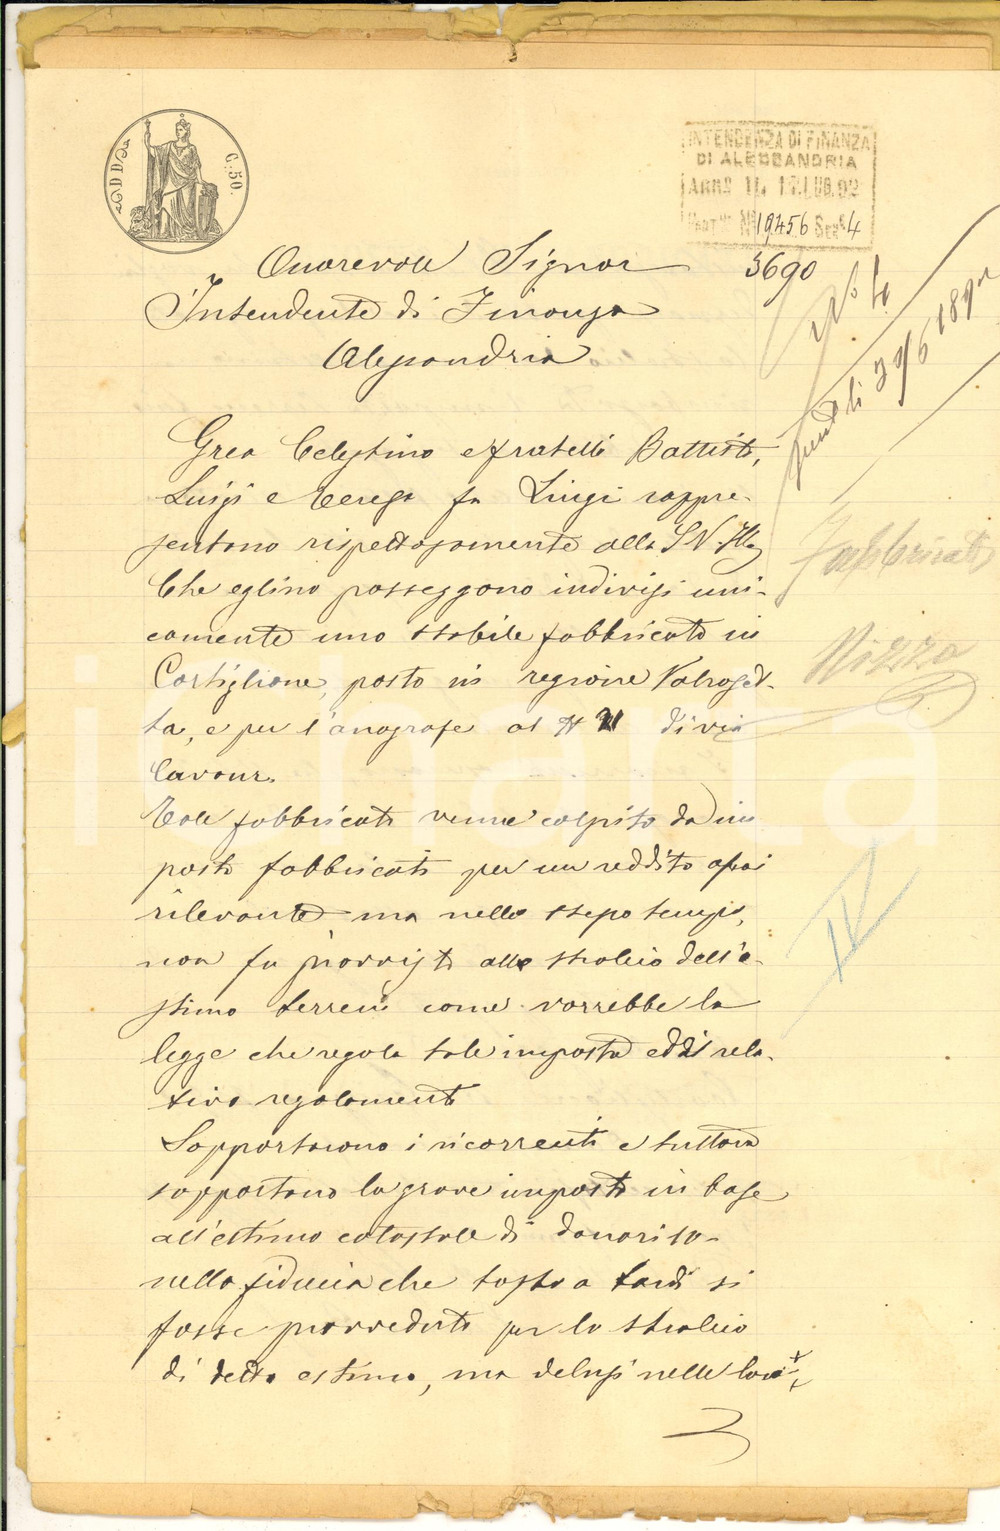 C: 50.
INTENDENZA DI FINANZA
DI ALESSANDRIA
ARR. IL 17. LUG. 92
N. 19456 Sez. 4
5690
Onorevole Signor
Intendente di Finanza
Alessandria
N° 4
30/6 189
Grea Celestino e fratelli Battista,
Luigi e Teresa fu Luigi rappre-
sentano rispettosamente alla S.V. Ill.
Che eglino posseggono indivisi uni-
camente uno stabile fabbricato in
Cortiglione, posto in regione Valroset-
ta, e per l'anagrafe al N 21 di via
Cavour.
Tale fabbricato venne colpito da im
posta fabbricati per un reddito assai
rilevante ma nello stesso tempo,
non fu provvisto allo stralcio dell'e-
stimo terreni come vorrebbe la
legge che regola tale imposta ed il rela-
tivo regolamento
Sopportarono i ricorrenti e tuttora
sopportano la grave imposta in base
all'estimo catastale di danari 10-
nella fiducia che tosto o tardi si
fosse provveduto per lo stralcio
di detto estimo, ma delusi nelle loro
Fabbricati
Nizza
IV